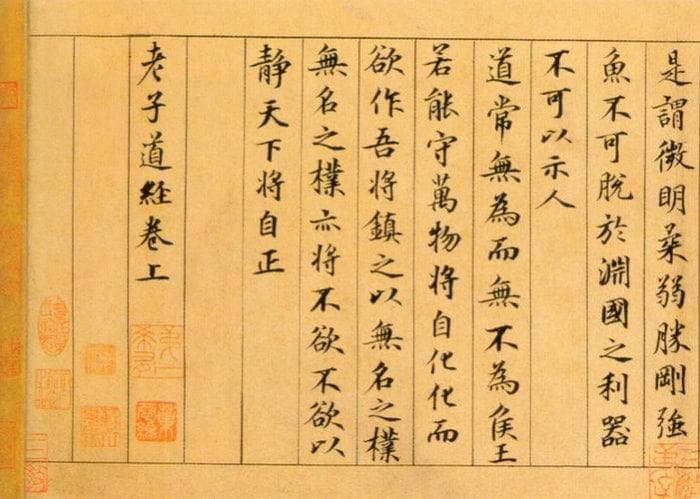 是謂微明柔弱勝剛強
魚不可脫於淵國之利器
不可以示人
道常無為而無不為侯王
若能守萬物將自化化而
欲作吾將鎮之以無名之樸
無名之樸亦將不欲不欲以
靜天下將自正
老子道經卷上